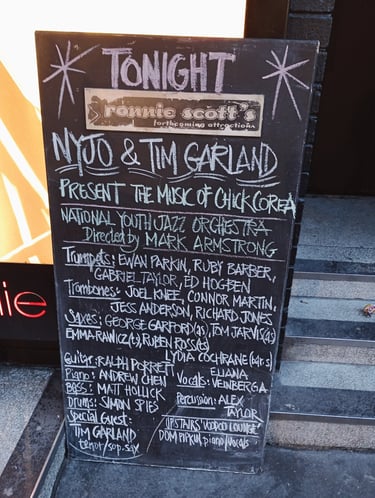 TONIGHT
ronnie scott's
forthcoming attractions
NYJO & TIM GARLAND
PRESENT THE MUSIC OF CHICK COREA
NATIONAL YOUTH JAZZ ORCHESTRA
Directed by MARK ARMSTRONG
Trumpets: EWAN PARKIN, RUBY BARBER,
GABRIEL TAYLOR, ED HOGBEN
Trombones: JOEL KNEE, CONNOR MARTIN,
JESS ANDERSON, RICHARD JONES
Saxes: GEORGE GARFORD(as), TOM JARVIS(as)
EMMA RAWICZ(ts) RUBEN ROSS(ts)
LYDIA COCHRANE(bar.s)
Guitar: RALPH PORRETT
Piano: ANDREW CHEN
BASS: MATT HOLLICK
DRUMS: SIMON SPIES
Special Guest:
TIM GARLAND
tenor/sop.sax
ELIANA
Vocals: VEINBERGA
Percussion: ALEX
TAYLOR
UPSTAIRS 'VOODOO LOUNGE'
DOM PIPKIN piano/vocals
nie